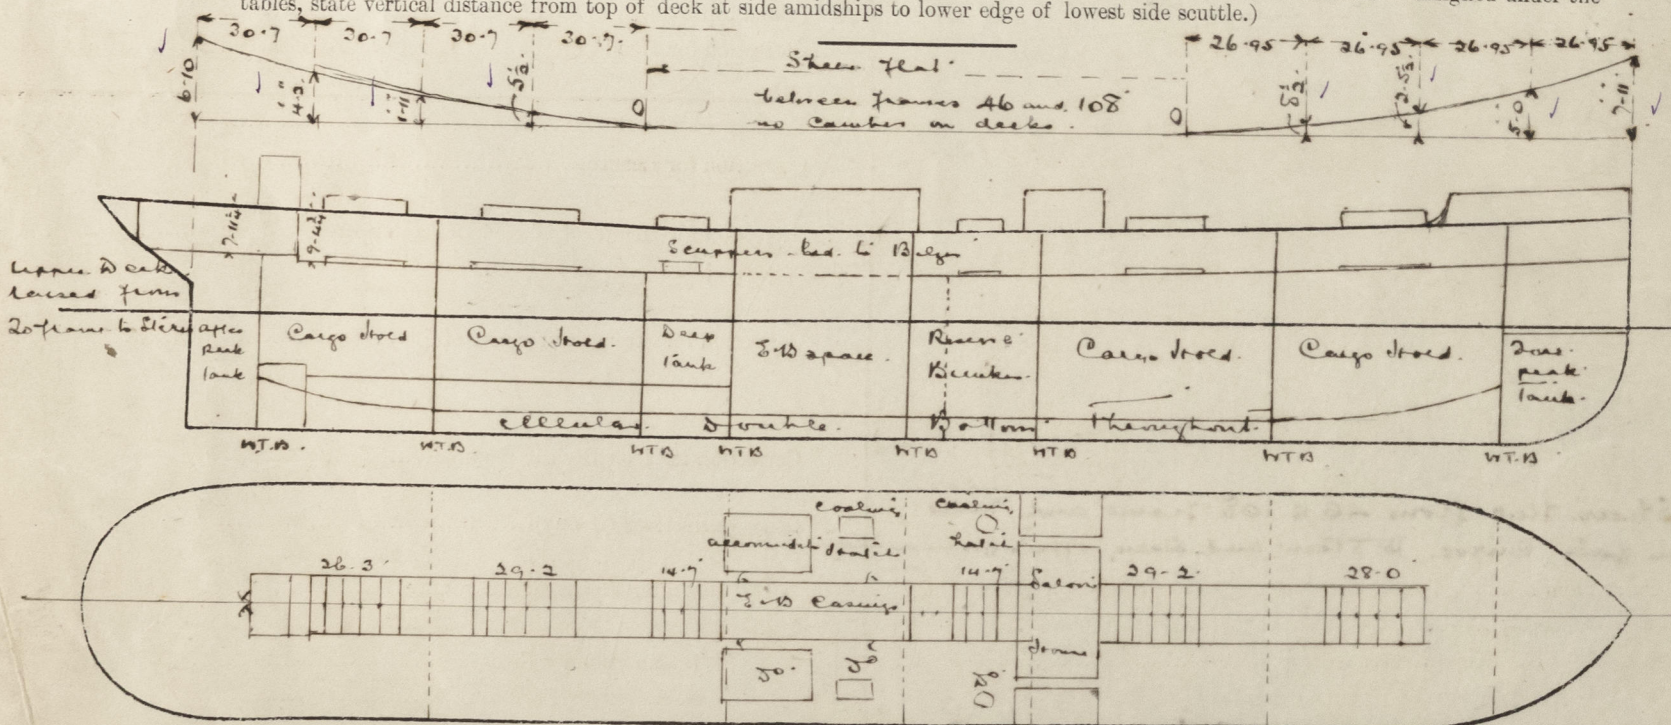 tables, state vertical distance from top of deck at side amidships to lower edge of lowest side scuttle.)
30·7 30·7 30·7 30·7
26·95 26·95 26·95 26·95
6·10
1·11
0
Sheer flat
between frames 46 and 108
no camber on decks.
0
5·0
7·11
Scuppers led to Bilges
Upper Deck
raised from
20 frame to Stern
after
peak
tank
Cargo Hold
Cargo Hold.
Deep
Tank
E·B space.
Reserve
Bunker
Cargo Hold.
Cargo Hold.
Fore
peak
tank.
Cellular Double Bottom Throughout
W.T.B. W.T.B. W T B W T B W T B W T B W T B W T.B
coaling
hatch
coaling
hatch
26·3 29·2 14·7 14·7 29·2 28·0
E·B Casings
Saloon
House
Do.
Do
Do